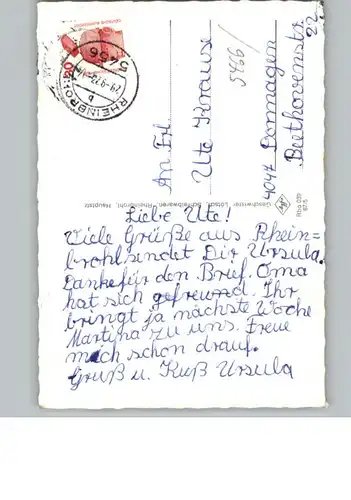 5456
RHEINBROHL
b
An Frl.
Ute Krause
4047 Dormagen
Beethovenstr.
22
5466/
Geschwister Lötsch, Schreibwaren, Rheinbrohl, Hauptplatz
Liebe Ute!
Viele Grüße aus Rhein=
brohl sendet Dir Ursula.
Danke für den Brief. Oma
hat sich gefreund. Ihr
bringt ja nächste Woche
Martina zu uns. Freue
mich schon drauf.
Gruß u. Kuß Ursula